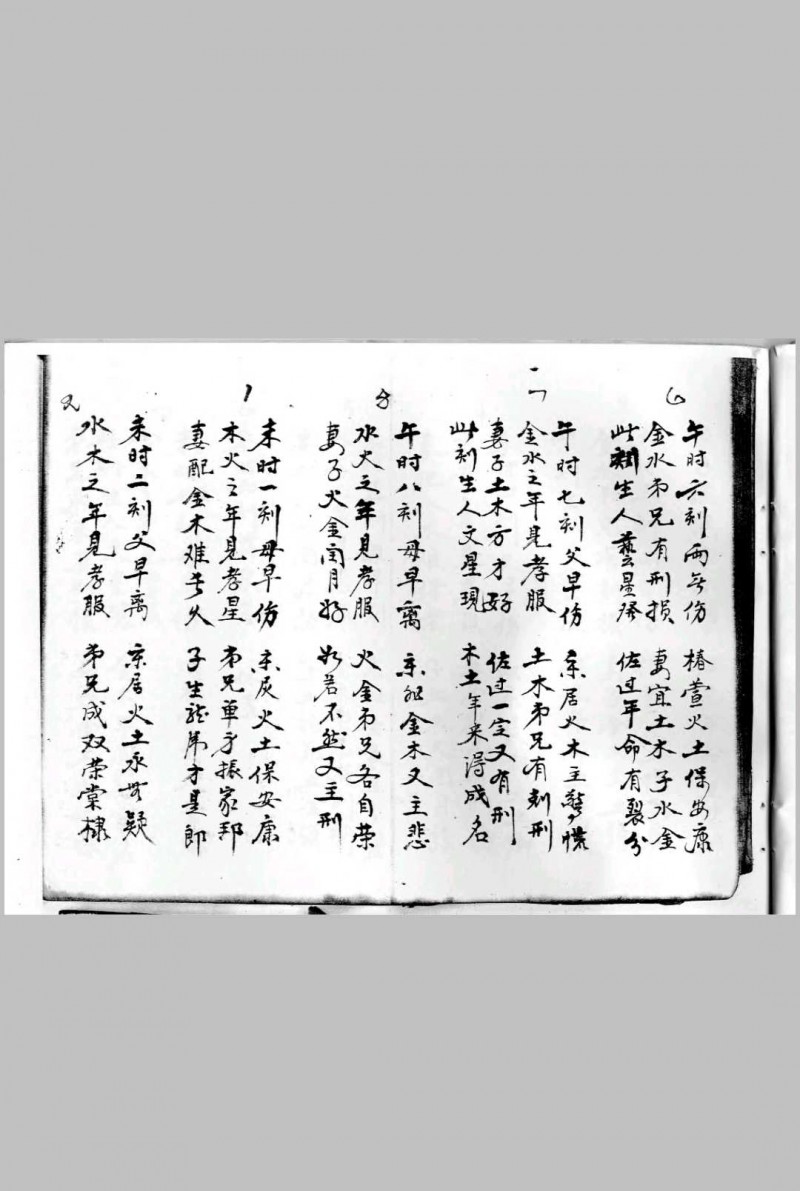 午时六刻两无伤 椿萱火土保安康
金水弟兄有刑损 妻宜土木子水金
此刻生人藝星 佐过年命有裂分
午时七刻父早伤 亲居火木主驚慌
金水之年見孝服 土木弟兄有刑
妻子土木方才好 佐过一定又有刑
此刻生人文星現 木土年来得成名
午时八刻母早离 亲 金木又主悲
水火之年見孝服 火金弟兄各自荣
妻子火金闰月好 若不然又主刑
未时一刻母早伤 亲 火土保安康
木火之年見孝星 弟兄單身振家邦
妻配金木难长久 子生 才是郎
未时二刻父早离 亲居火土永无疑
水木之年見孝服 弟兄成双荣棠棣